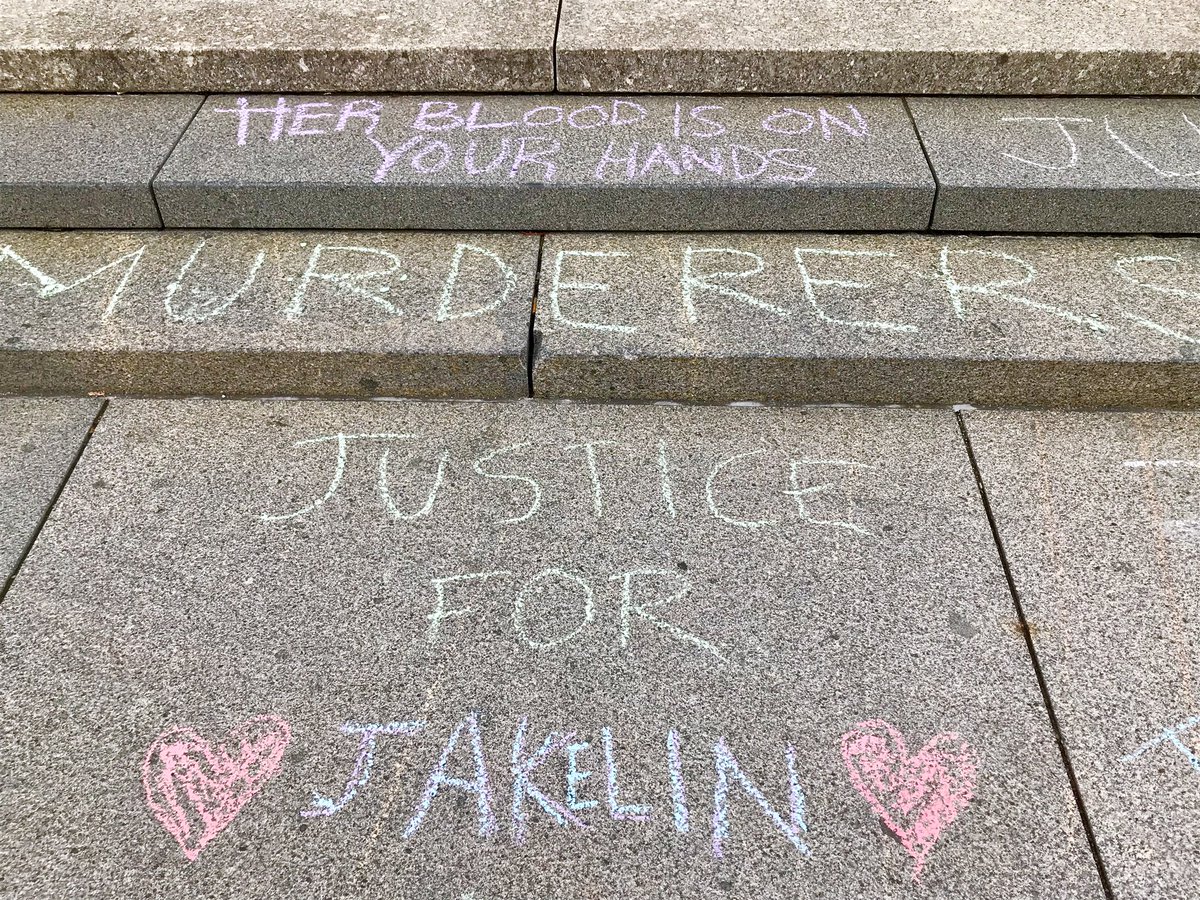 HER BLOOD IS ON
YOUR HANDS
MURDERERS
JUSTICE
FOR
JAKELIN